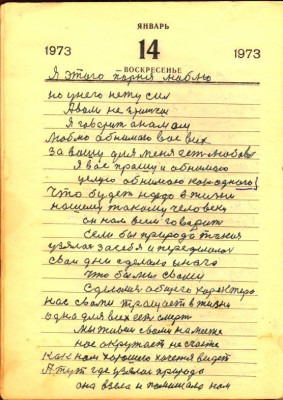 ЯНВАРЬ
1973 14 1973
ВОСКРЕСЕНЬЕ
Я этого парня люблю
но у него нету сил
А вам не притчи
Я говорит
Люблю обнимаю вас всех
за вашу для меня
Я вас прошу и обнимаю
целую обнимаю каждого!
Что будет в жизни
нашему такому человеку
он нам всем говорит
Если бы природа
узяла за себя и переделала
свои дни сделала
что бы мы своему
Сделали общего характера
нас своим в жизнь
одна для всех есть смерть
мы живём своими
нас окружает не счастье
как нам хорошего хочется видеть
А тут где узялась природа
она взяла и помешала нам